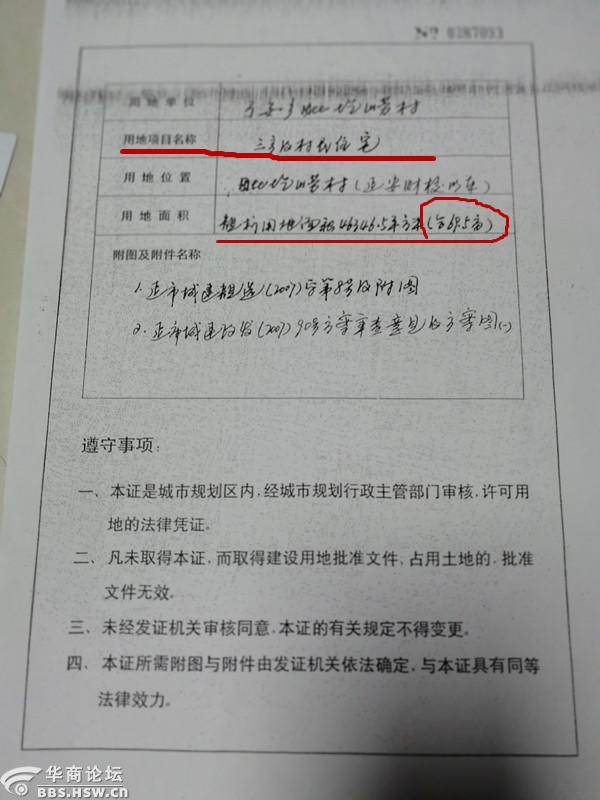 № 0287093
用地单位
村
用地项目名称 三 及村民住宅
用地位置 村（延安财校
用地面积 规划用地面积46346.5平方米（合69.5亩）
附图及附件名称
1. 延市城建规选（2007）字第8号及附图
2. 延市城建政发（2007）90号方案审查意见及方案图
遵守事项：
一、本证是城市规划区内，经城市规划行政主管部门审核，许可用
地的法律凭证。
二、凡未取得本证，而取得建设用地批准文件，占用土地的，批准
文件无效。
三、未经发证机关审核同意，本证的有关规定不得变更。
四、本证所需附图与附件由发证机关依法确定，与本证具有同等
法律效力。
华商论坛
BBS.HSW.CN